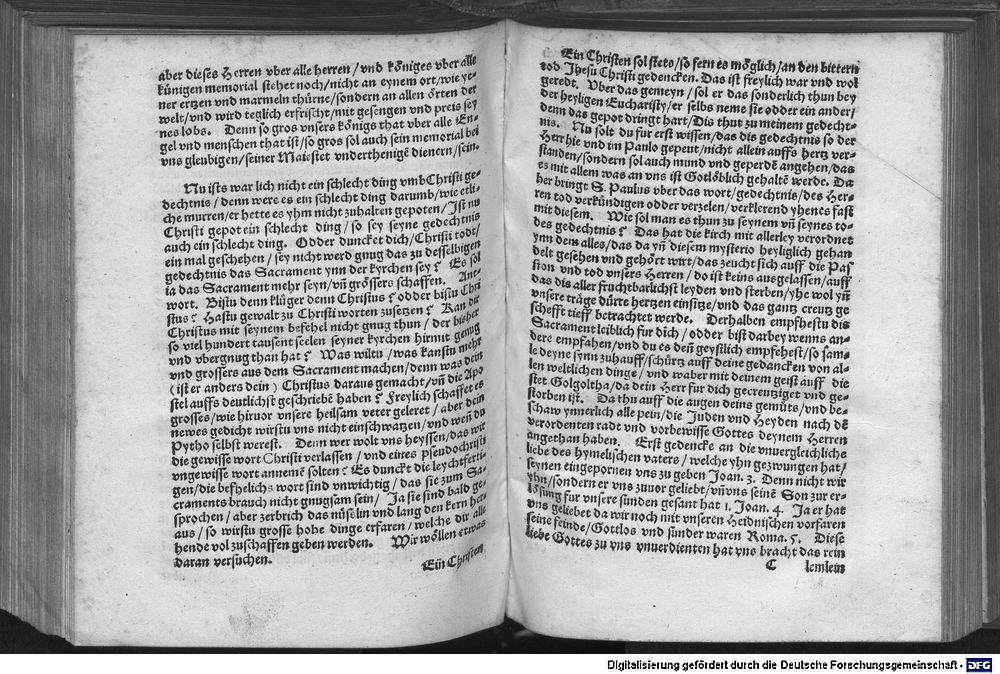 aber dieses Herren vber alle herren / vnd königes vber alle
künigen memorial stehet noch / nicht an eynem ort / wie ye-
ner ertzen und marmeln thürne / sondern an allen örten der
welt / vnd wird teglich erfrischt / mit gesengen vnd preis sey
nes lobs. Denn so gros vnsers königs that vber alle En-
gel vnd menschen that ist / so gros sol auch sein memorial bei
vns gleubigen / seiner Maiestet vnderthenigē dienern / sein.
Nu ists war lich nicht ein schlecht ding vmb Christi ge-
dechtnis / denn were es ein schlecht ding darumb / wie etli-
che murren / er hette es yhm nicht zuhalten gepoten / Ist nu
Christi gepot ein schlecht ding / so sey seyne gedechtnis
auch ein schlecht ding. Odder duncket dich / Christi todt /
ein mal geschehen / sey nicht werd gnug das zu desselbigen
gedechtnis das Sacrament ynn der kyrchen sey? Es sol
ia das Sacrament mehr seyn / vñ grössers schaffen. Ant-
wort. Bistu denn klüger denn Christus? odder bistu Chri
stus? Hastu gewalt zu Christi worten zusetzen? Kan die
Christus mit seynem befehel nicht gnug thun / der bisher
so viel hundert tausent seelen seyner kyrchen hirmit genug
vnd vbergnug than hat? Was wiltu / was kanstu mehr
vnd grossers aus dem Sacrament machen / denn was dein
(ist er anders dein) Christus daraus gemacht / vñ die Apo
stel auffs deutlichst geschriebē haben? Freylich schaffet es
grosses / wie hiruor vnsere heilsam veter geleret / aber dein
newes gedicht wirstu vns nicht einschwatzen / vnd wenñ du
Pytho selbst werest. Denn wer wolt vns heyssen / das wir
die gewisse wort Christi verlassen / vnd eines pseudochristi
vngewisse wort annemē solten? Es dunckt die leychtferti-
gen / die befhelichs wort sind vnwichtig / das sie zum Sa-
craments brauch nicht gnugsam sein / Ja sie sind bald ge-
sprochen / aber zerbrich das nüßelin vnd lang den kern her-
aus / so wirstu grosse hohe dinge erfaren / welche dir alle
hende vol zuschaffen geben werden. Wir wöllen etwas
daran versuchen.
Eün Christen
Ein Christen sol stets / so fern es möglich / an den bittern
tod Jhesu Christi gedencken. Das ist freylich war vnd wol
geredt. Vber das gemeyn / sol er das sonderlich thun bey
der heyligen Eucharisty / er selbs neme sie odder ein ander /
denn das gepot dringt hart / Dis thut zu meinem gedecht-
nis. Nu solt du fur erst wissen / das dis gedechtnis so der
Herr hie vnd im Paulo gepeut / nicht allein auffs hertz ver-
standen / sondern sol auch mund vnd geperdē angehen / das
es mit allem was an vns ist Gotlöblich gehaltē werde. Da
her bringt S. Paulus vber das wort / gedechtnis / des Her-
ren tod verkündigen odder verzelen / verklerend yhenes fast
mit diesem. Wie sol man es thun zu seynem vñ seynes to-
des gedechtnis? Das hat die kirch mit allerley verordnet
ynn dem alles / das da yñ diesem mysterio heyliglich gehan
delt gesehen vnd gehört wirt / das zeucht sich auff die Pas
sion vnd tod vnsers Herren / do ist keins ausgelassen / auff
das dis aller fruchtbarlichst leyden vnd sterben / yhe wol yñ
vnsere träge dürre hertzen einsitze / vnd das gantz creutz ge
schefft tieff betrachtet werde. Derhalben empfhestu dis
Sacrament leiblich fur dich / odder bist darbey wenns an-
dere empfahen / vnd du es denn geystlich empfehest / so sam-
le deyne synn zuhauff / schürtz auff deine gedancken von al-
len weltlichen dinge / vnd waber mit deinem geist auff die
stet Golgoltha / da dein Herr fur dich gecreutziget vnd ge-
storben ist. Da thu auff die augen deins gemüts / vnd be-
schaw ynnerlich alle pein / die Juden vnd Heyden nach dē
verordenten radt vnd vorbewisse Gottes deynem Herren
angethan haben. Erst gedencke an die vnuergleichliche
liebe des hymelischen vaters / welche yhn gezwungen hat /
seynen eingepornen vns zu geben Joan. 3. Denn nicht wir
yhn / sonder er vns zuuor geliebt / vñ vns seinē Son zur er-
lösung fur vnsere sünden gesant hat 1. Joan. 4. Ja er hat
vns geliebet da wir noch mit vnseren Heidnischen vorfaren
seine feinde / Gottlos vnd sünder waren Roma. 5. Diese
liebe Gottes zu vns vnuerdienten hat vns bracht das rein
C lemlein
Digitalisierung gefördert durch die Deutsche Forschungsgemeinschaft - DFG